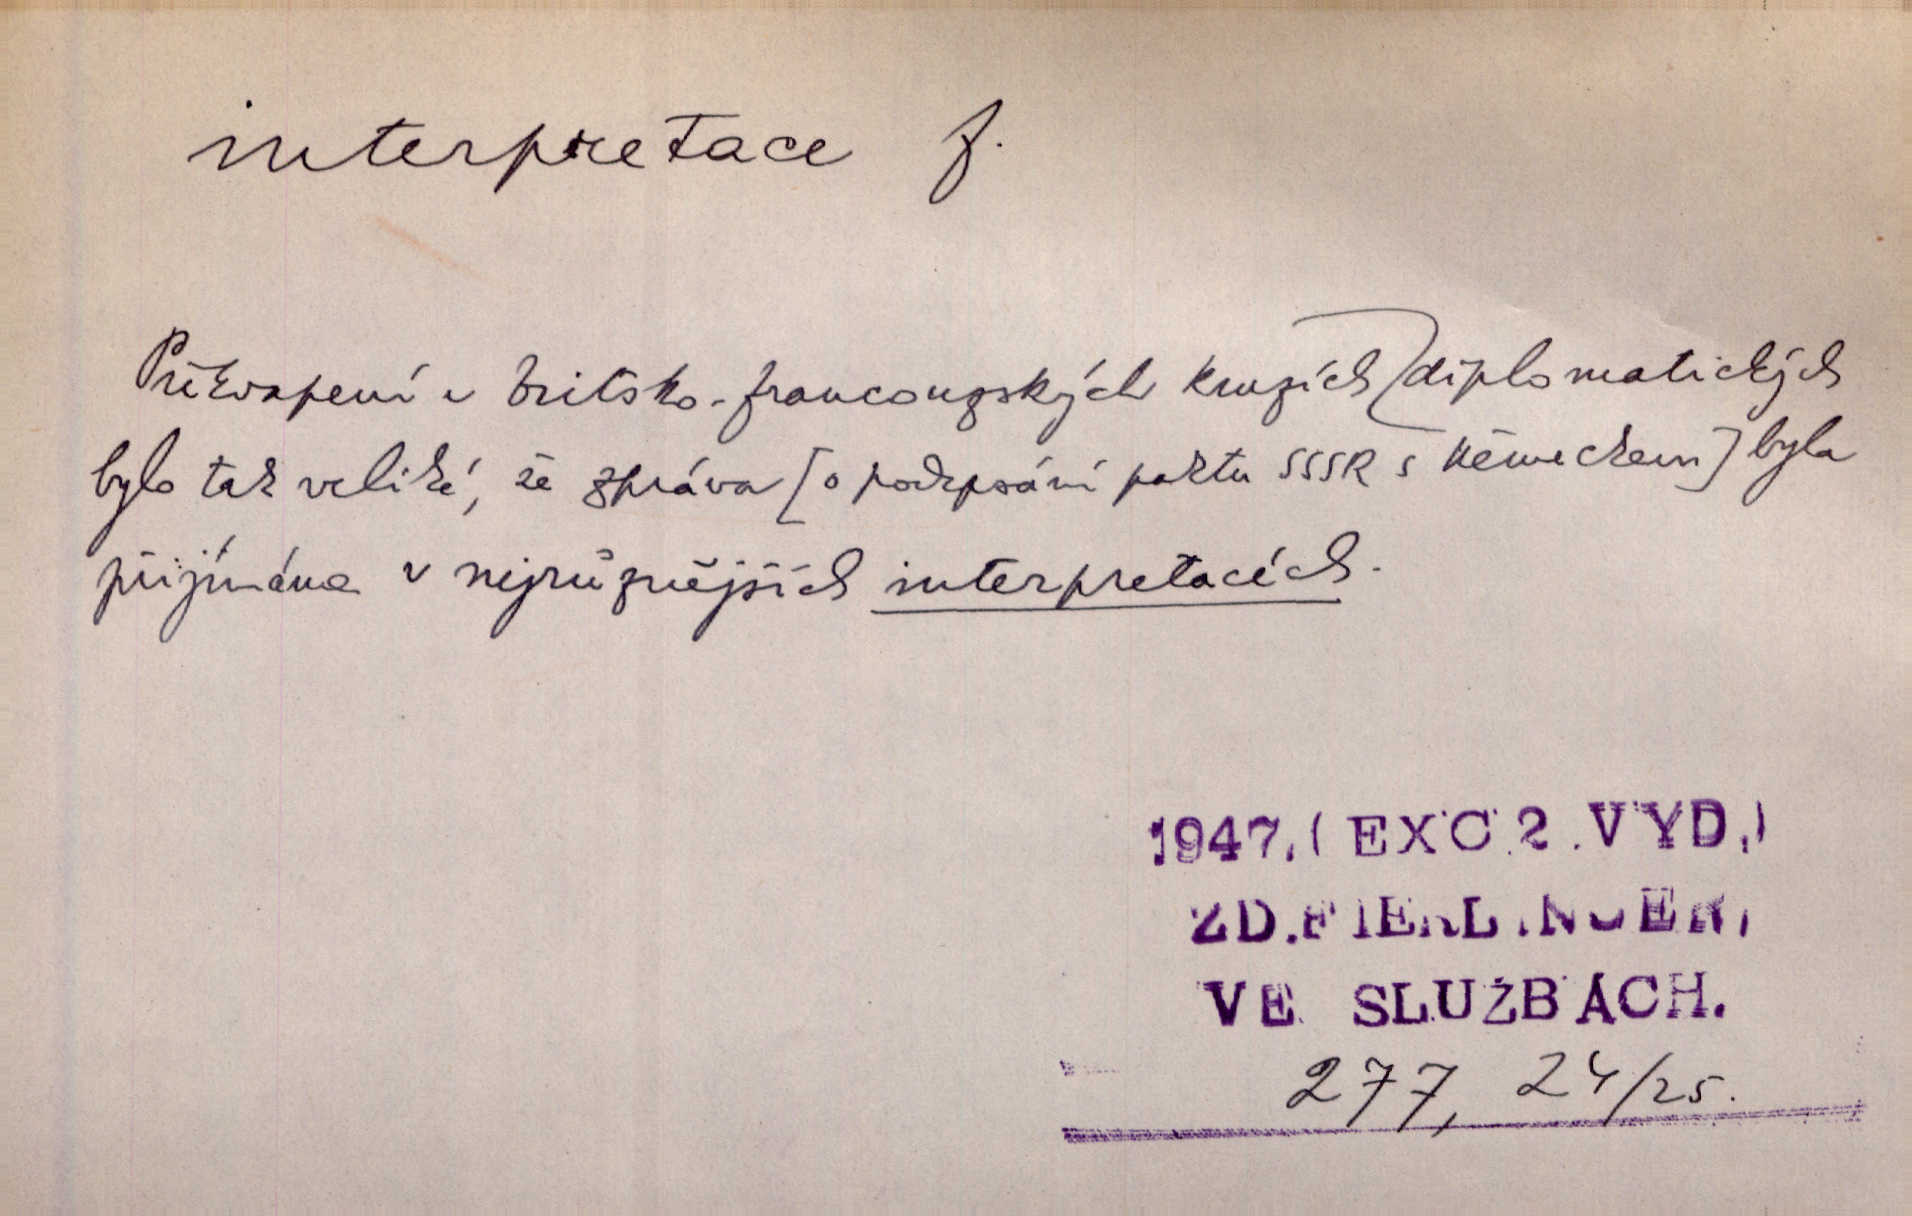 interpretace f.
Překvapení v britsko-francouzských kruzích diplomatických
bylo tak veliké, že zpráva [o podepsání paktu SSSR s Německem] byla
přijímána v nejrůznějších interpretacích.
1947.(EXC.2.VYD.)
ZD.FIERLINGER,
VE SLUŽBÁCH.
277, 24/25.